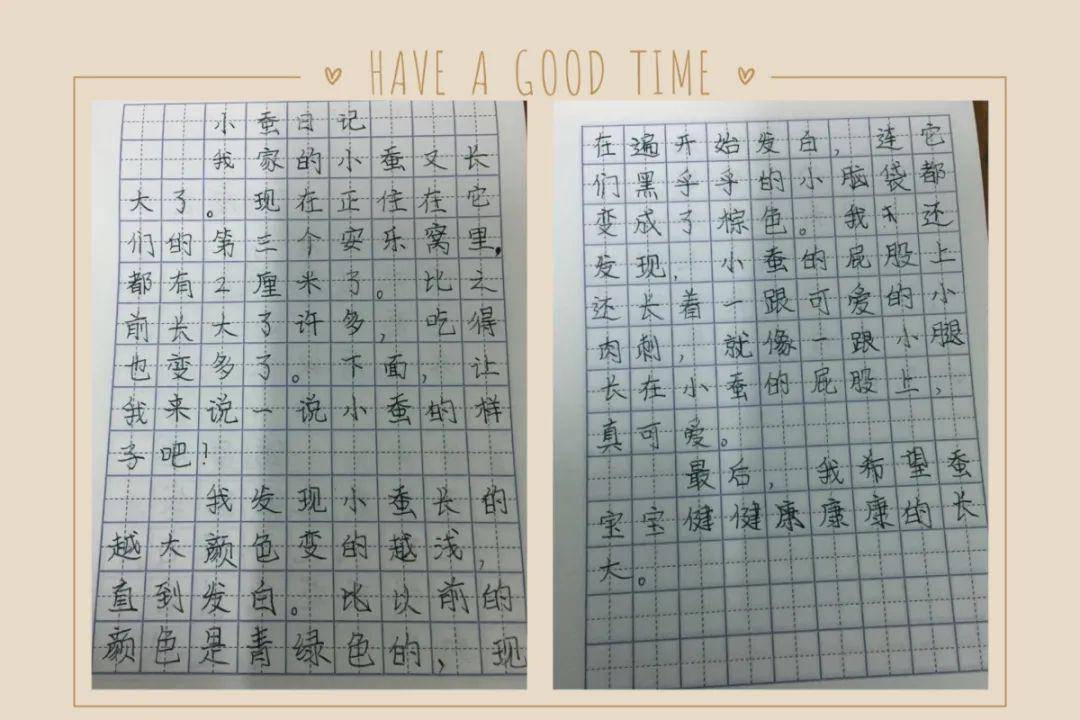 HAVE A GOOD TIME
小蚕日记
我家的小蚕又长
大了。现在正住在它
们的第三个安乐窝里,
都有2厘米了。比之
前长大了许多,吃得
也变多了。下面,让
我来说一说小蚕的样
子吧!
我发现小蚕长的
越大颜色变的越浅,
直到发白。比以前的
颜色是青绿色的,现
在遍开始发白,连它
们黑乎乎的小脑袋都
变成了棕色。我还
发现,小蚕的屁股上
还长着一跟可爱的小
肉刺,就像一跟小腿
长在小蚕的屁股上,
真可爱。
最后,我希望蚕
宝宝健健康康康的长
大。